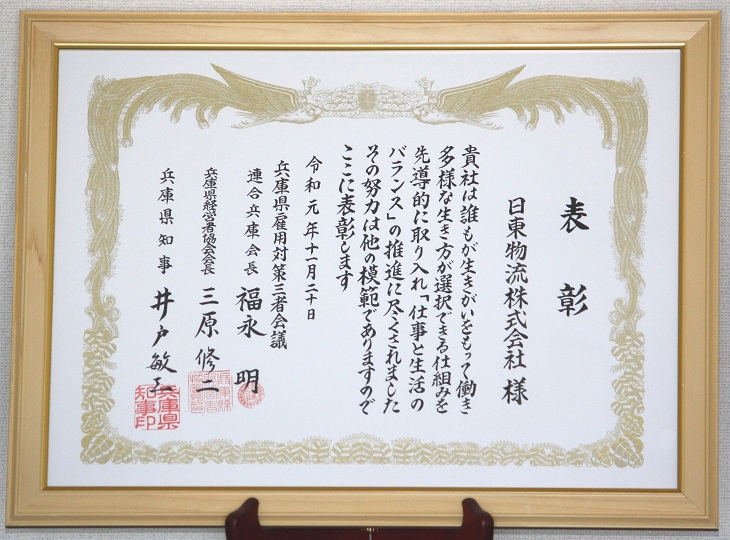 表彰
日東物流株式会社 様
貴社は誰もが生きがいをもって働き
多様な生き方が選択できる仕組みを
先導的に取り入れ「仕事と生活の
バランス」の推進に尽くされました
その努力は他の模範でありますので
ここに表彰します
令和元年十一月二十日
兵庫県雇用対策三者会議
連合兵庫会長 福永 明
兵庫県経営者協会会長 三原 修二
兵庫県知事 井戸 敏三
兵庫県
知事印